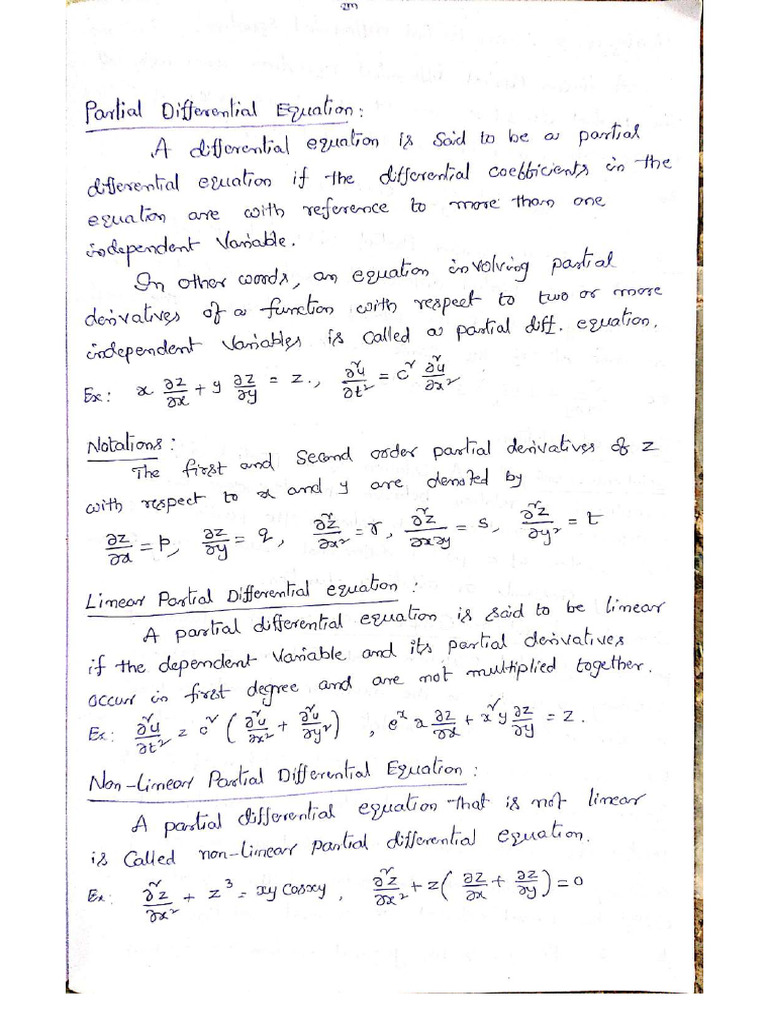 Partial Differential Equation:
A differential equation is said to be a partial
differential equation if the differential coefficients in the
equation are with reference to more than one
independent variable.
In other words, an equation involving partial
derivatives of a function with respect to two or more
independent variables is called a partial diff. equation.
Ex: x ∂z/∂x + y ∂z/∂y = z., ∂²u/∂t² = c² ∂²u/∂x²
Notations:
The first and second order partial derivatives of z
with respect to x and y are denoted by
∂z/∂x = p, ∂z/∂y = q, ∂²z/∂x² = r, ∂²z/∂x∂y = s, ∂²z/∂y² = t
Linear Partial Differential equation:
A partial differential equation is said to be linear
if the dependent variable and its partial derivatives
occur in first degree and are not multiplied together.
Ex: ∂²u/∂t² = c² (∂²u/∂x² + ∂²u/∂y²), eˣ ∂z/∂x + x²y ∂z/∂y = z.
Non-Linear Partial Differential Equation:
A partial differential equation that is not linear
is called non-linear partial differential equation.
Ex: ∂²z/∂x² + z³ = xy cosxy, ∂²z/∂x² + z(∂z/∂x + ∂z/∂y) = 0